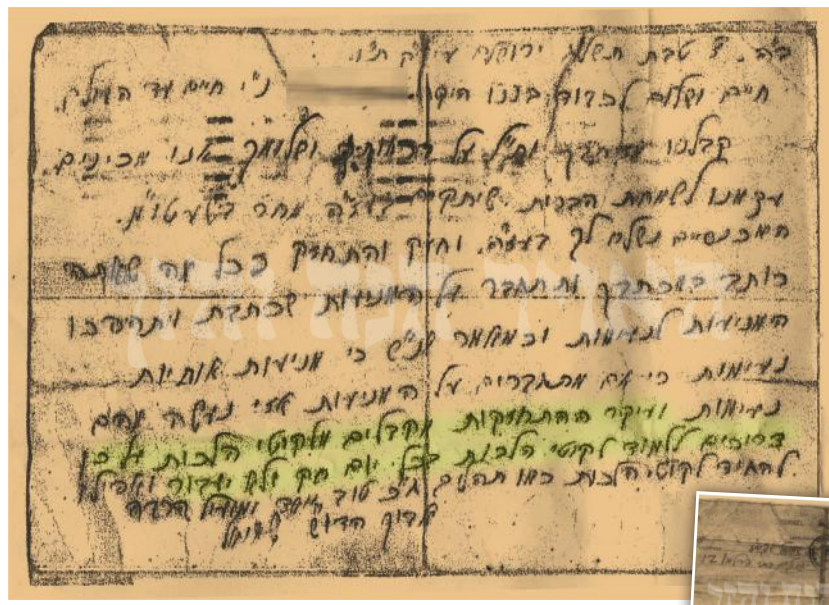 ב"ה. טבת ירושלים עיה"ק ת"ו.
חיים ושלום לכבוד בננו היקר. נ"י חיים עד העולם.
קבלנו מכתבך ות"ל על ושלומך אנו מכינים
עצמנו לשמחת הברית מחר בשעטו"מ.
המכנסיים נשלח לך בעזה"י. וחזק והתחזק בכל מה שאתה
כותב במכתבך ותתגבר על המניעות שכתבת ויתהפכו
המניעות לנעימות וכמאמר אנ"ש כי מניעות אותיות
נעימות כי אם מתגברים על המניעות אזי נעשה מהם
נעימות ועיקר ההתחזקות מקבלים מלקוטי הלכות על כן
צריכים ללמוד לקוטי הלכות בכל יום חק ולא יעבור ואפילו
להגיד לקוטי הלכות כמו תהלים ג"כ טוב מאד ומועיל הרבה
אביך הדו"ש